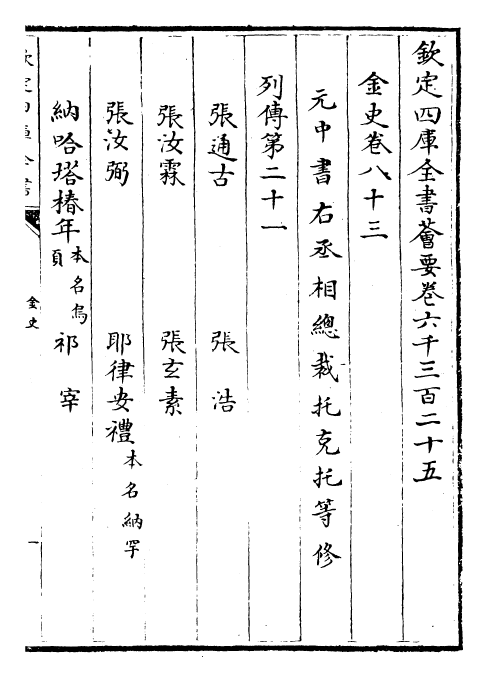 欽定四庫全書薈要卷六千三百二十五
金史卷八十三
元中書右丞相總裁托克托等修
列傳第二十一
張通古　張浩
張汝霖　張玄素
張汝弼　耶律安禮本名納罕
納哈塔椿年本名烏頁　祁宰
欽定四庫全書
金史
一